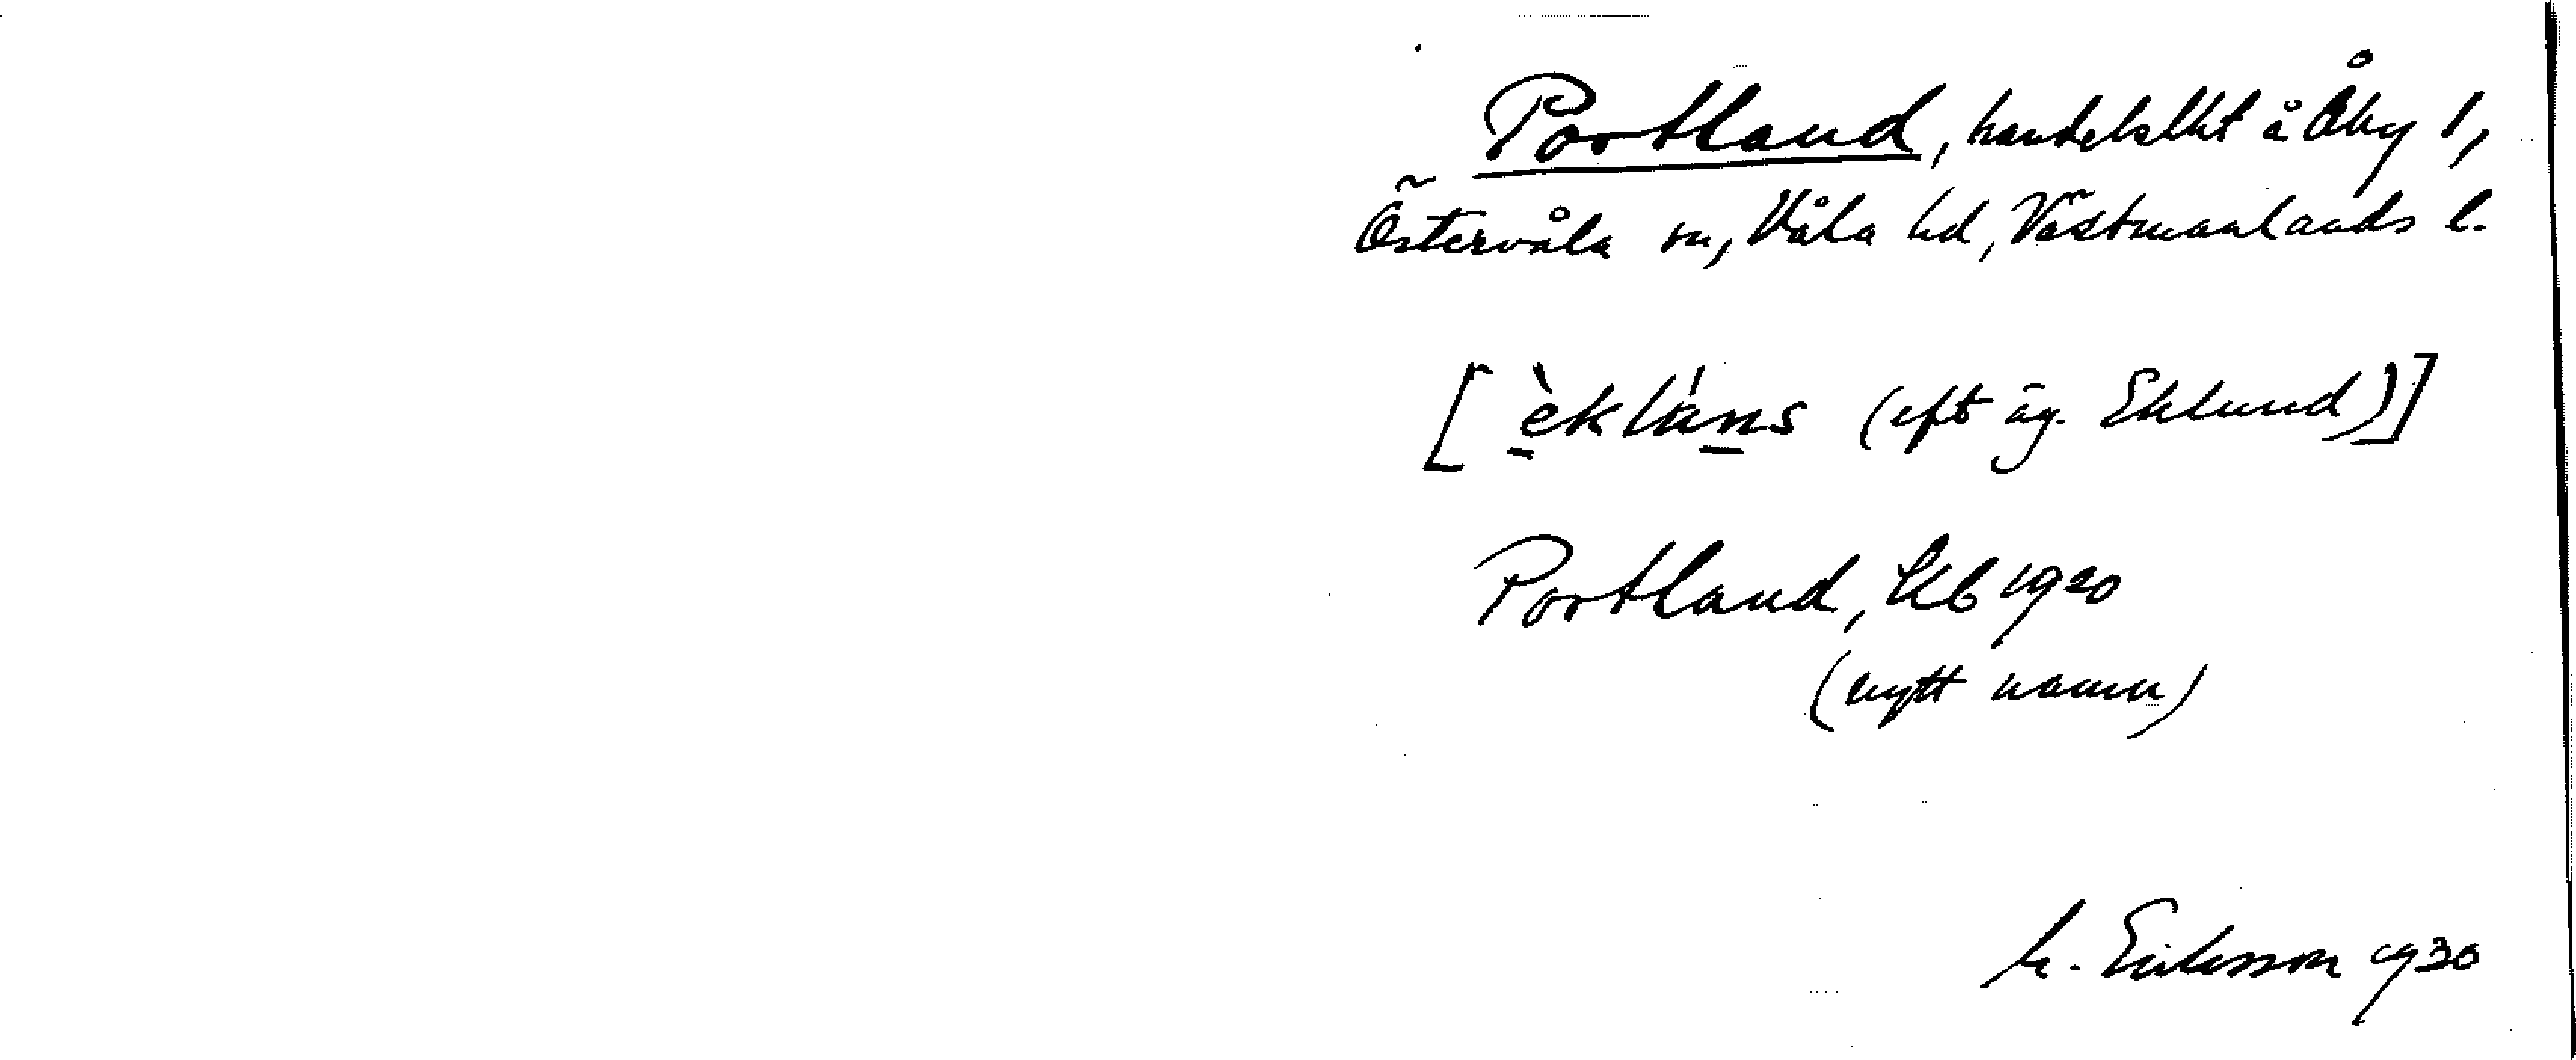 Portland, handelslht å Åby 1,
Östervåla sn, Våla hd, Västmanlands l.
[èkláns (eft äg. Eklund)]
Portland, Kb 1920
(nytt namn)
M. Eriksson 1930